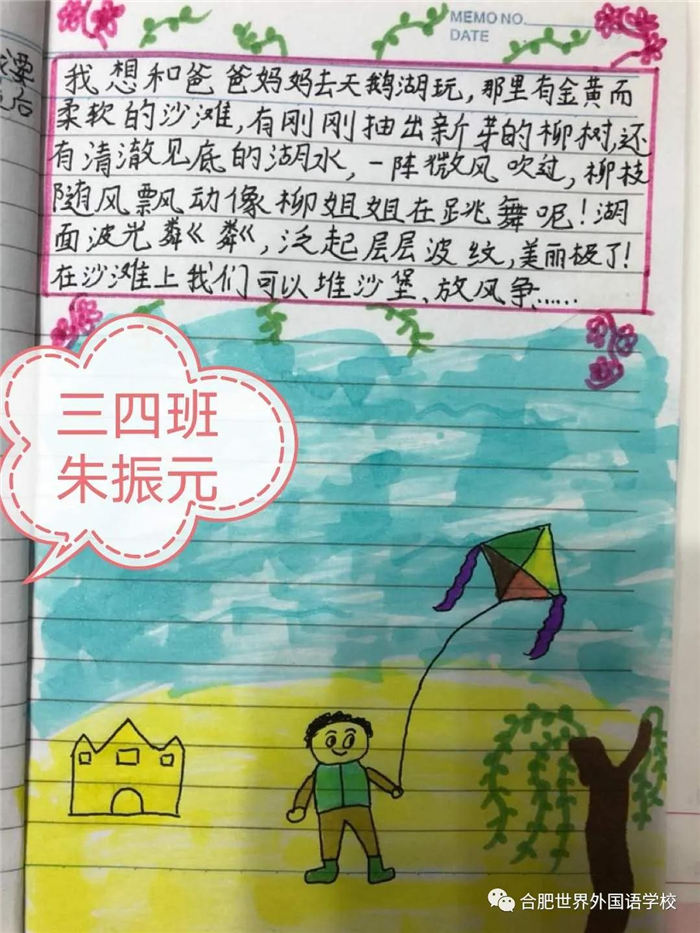 MEMO NO.
DATE
我想和爸爸妈妈去天鹅湖玩,那里有金黄而
柔软的沙滩,有刚刚抽出新芽的柳树,还
有清澈见底的湖水,一阵微风吹过,柳枝
随风飘动像柳姐姐在跳舞呢!湖
面波光粼粼,泛起层层波纹,美丽极了!
在沙滩上我们可以堆沙堡、放风争……
三四班
朱振元
合肥世界外国语学校